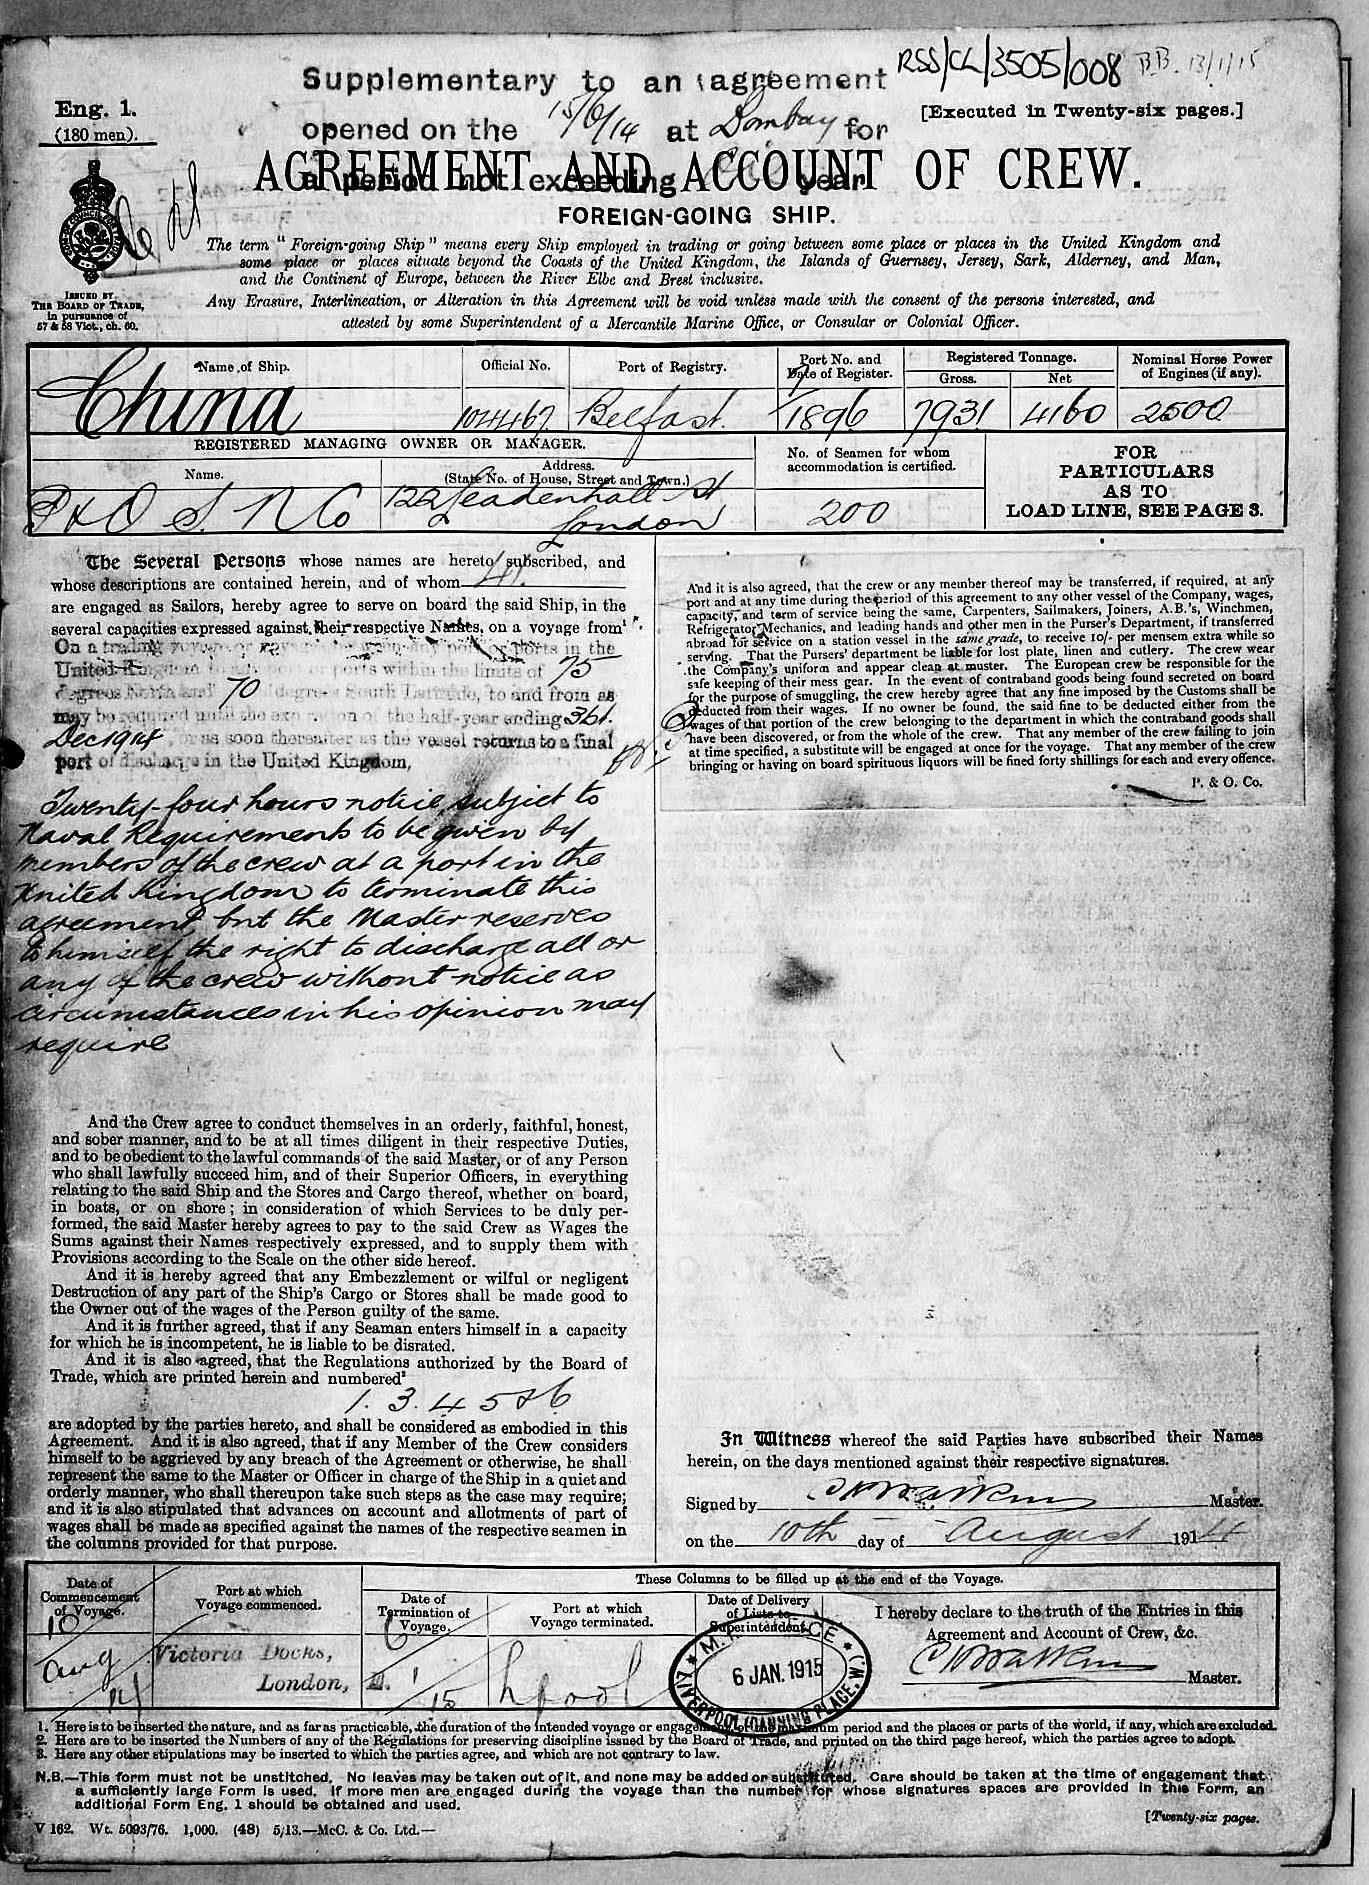 RSS/CL/3505/008 B.B. 13/1/15
Supplementary to an agreement
opened on the 15/6/14 at Bombay for
a period not exceeding year
Eng. 1.
(180 men).
[Executed in Twenty-six pages.]
AGREEMENT AND ACCOUNT OF CREW.
FOREIGN-GOING SHIP.
ISSUED BY
THE BOARD OF TRADE,
in pursuance of
57 & 58 Vict., ch. 60.
The term "Foreign-going Ship" means every Ship employed in trading or going between some place or places in the United Kingdom and
some place or places situate beyond the Coasts of the United Kingdom, the Islands of Guernsey, Jersey, Sark, Alderney, and Man,
and the Continent of Europe, between the River Elbe and Brest inclusive.
Any Erasure, Interlineation, or Alteration in this Agreement will be void unless made with the consent of the persons interested, and
attested by some Superintendent of a Mercantile Marine Office, or Consular or Colonial Officer.
Name of Ship. Official No. Port of Registry. Port No. and Date of Register. Registered Tonnage. Gross. Net Nominal Horse Power of Engines (if any).
China 104467 Belfast. 7/1896 7931 4160 2500
REGISTERED MANAGING OWNER OR MANAGER.
Name. Address. (State No. of House, Street and Town.)
No. of Seamen for whom accommodation is certified.
P & O S. N Co 122 Leadenhall St
London
200
FOR
PARTICULARS
AS TO
LOAD LINE, SEE PAGE 3.
The Several Persons whose names are hereto subscribed, and
whose descriptions are contained herein, and of whom 41
are engaged as Sailors, hereby agree to serve on board the said Ship, in the
several capacities expressed against their respective Names, on a voyage from
On a trading voyage or ports in the
United Kingdom ports within the limits of 75
degrees North and 70 degrees South Latitude, to and from as
may be required until the expiration of the half-year ending 31st.
Dec 1914 or as soon thereafter as the vessel returns to a final
port of discharge in the United Kingdom,
Twenty-four hours notice subject to
Naval Requirements to be given by
members of the crew at a port in the
United Kingdom to terminate this
agreement, but the Master reserves
to himself the right to discharge all or
any of the crew without notice as
circumstances in his opinion may
require
And the Crew agree to conduct themselves in an orderly, faithful, honest,
and sober manner, and to be at all times diligent in their respective Duties,
and to be obedient to the lawful commands of the said Master, or of any Person
who shall lawfully succeed him, and of their Superior Officers, in everything
relating to the said Ship and the Stores and Cargo thereof, whether on board,
in boats, or on shore; in consideration of which Services to be duly per-
formed, the said Master hereby agrees to pay to the said Crew as Wages the
Sums against their Names respectively expressed, and to supply them with
Provisions according to the Scale on the other side hereof.
And it is hereby agreed that any Embezzlement or wilful or negligent
Destruction of any part of the Ship's Cargo or Stores shall be made good to
the Owner out of the wages of the Person guilty of the same.
And it is further agreed, that if any Seaman enters himself in a capacity
for which he is incompetent, he is liable to be disrated.
And it is also agreed, that the Regulations authorized by the Board of
Trade, which are printed herein and numbered²
1. 3. 4 5 & 6
are adopted by the parties hereto, and shall be considered as embodied in this
Agreement. And it is also agreed, that if any Member of the Crew considers
himself to be aggrieved by any breach of the Agreement or otherwise, he shall
represent the same to the Master or Officer in charge of the Ship in a quiet and
orderly manner, who shall thereupon take such steps as the case may require;
and it is also stipulated that advances on account and allotments of part of
wages shall be made as specified against the names of the respective seamen in
the columns provided for that purpose.
And it is also agreed, that the crew or any member thereof may be transferred, if required, at any
port and at any time during the period of this agreement to any other vessel of the Company, wages,
capacity, and term of service being the same, Carpenters, Sailmakers, Joiners, A.B.'s, Winchmen,
Refrigerator Mechanics, and leading hands and other men in the Purser's Department, if transferred
abroad for service on a station vessel in the same grade, to receive 10/- per mensem extra while so
serving. That the Pursers' department be liable for lost plate, linen and cutlery. The crew wear
the Company's uniform and appear clean at muster. The European crew be responsible for the
safe keeping of their mess gear. In the event of contraband goods being found secreted on board
for the purpose of smuggling, the crew hereby agree that any fine imposed by the Customs shall be
deducted from their wages. If no owner be found, the said fine to be deducted either from the
wages of that portion of the crew belonging to the department in which the contraband goods shall
have been discovered, or from the whole of the crew. That any member of the crew failing to join
at time specified, a substitute will be engaged at once for the voyage. That any member of the crew
bringing or having on board spirituous liquors will be fined forty shillings for each and every offence.
P. & O. Co.
In Witness whereof the said Parties have subscribed their Names
herein, on the days mentioned against their respective signatures.
Signed by Master.
on the 10th day of August 1914
Date of Commencement of Voyage. Port at which Voyage commenced. These Columns to be filled up at the end of the Voyage.
Date of Termination of Voyage. Port at which Voyage terminated. Date of Delivery of Lists to Superintendent. I hereby declare to the truth of the Entries in this
Agreement and Account of Crew, &c.
10 Aug 14 Victoria Docks,
London, E. 6/1/15 Lpool
M.M. OFFICE
6 JAN. 1915
LIVERPOOL (CANNING PLACE, W.)
Master.
1. Here is to be inserted the nature, and as far as practicable, the duration of the intended voyage or engagement or the maximum period and the places or parts of the world, if any, which are excluded.
2. Here are to be inserted the Numbers of any of the Regulations for preserving discipline issued by the Board of Trade, and printed on the third page hereof, which the parties agree to adopt.
3. Here any other stipulations may be inserted to which the parties agree, and which are not contrary to law.
N.B.—This form must not be unstitched. No leaves may be taken out of it, and none may be added or substituted. Care should be taken at the time of engagement that
a sufficiently large Form is used. If more men are engaged during the voyage than the number for whose signatures spaces are provided in this Form, an
additional Form Eng. 1 should be obtained and used.
[Twenty-six pages.
V 162. Wt. 5093/76. 1,000. (48) 5/13.—McC. & Co. Ltd.—